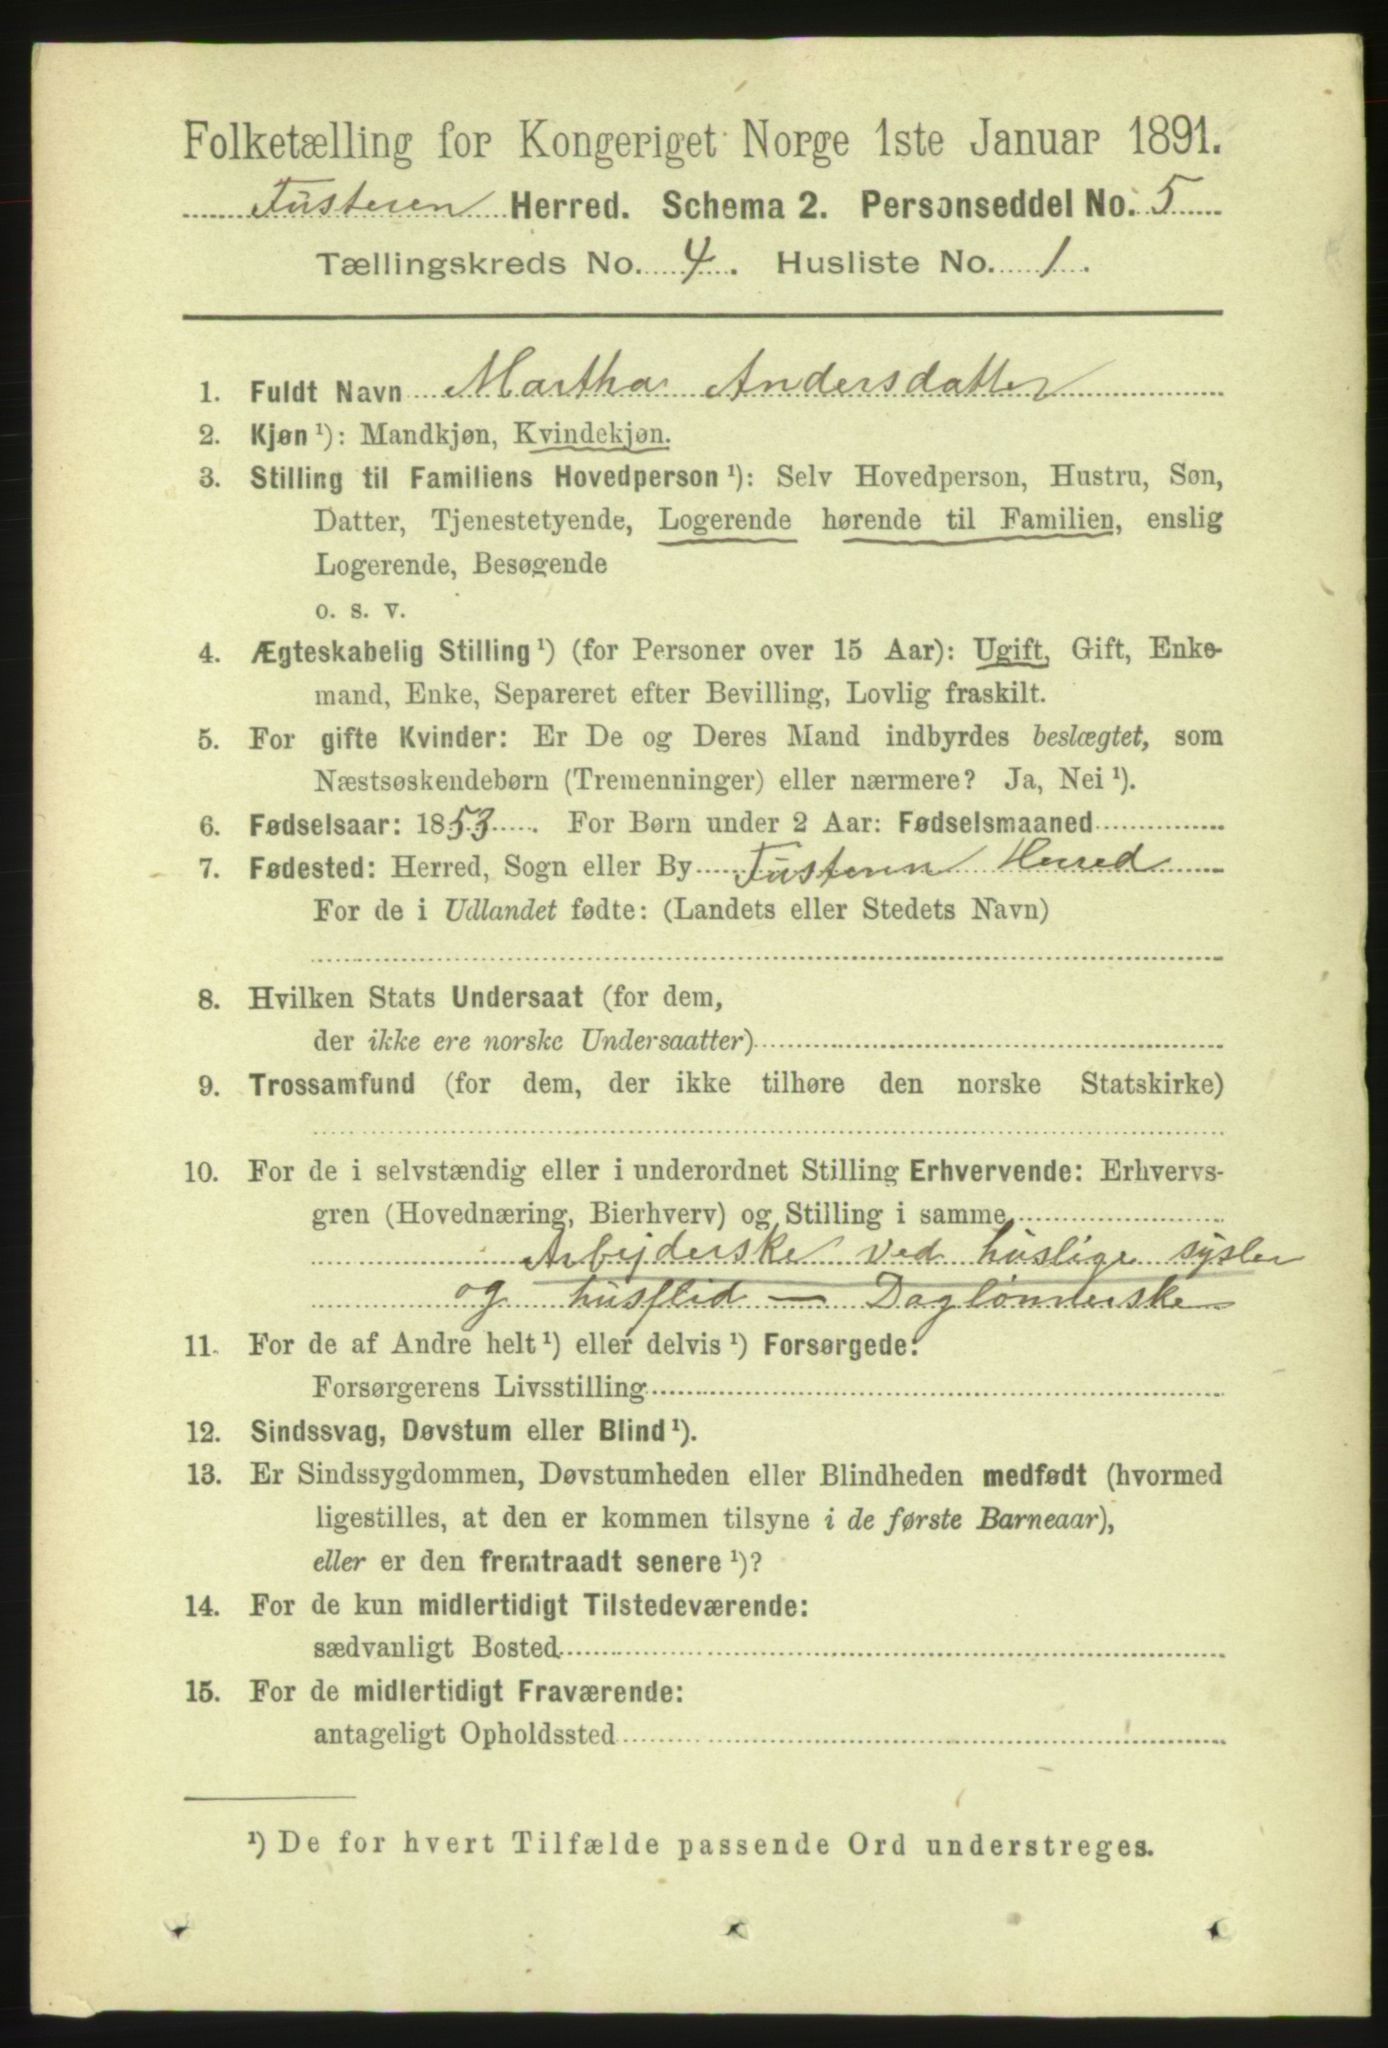 Folketælling for Kongeriget Norge 1ste Januar 1891.
Fusteren Herred. Schema 2. Personseddel No. 5
Tællingskreds No. 4. Husliste No. 1.
1. Fuldt Navn Martha Andersdatter
2. Kjøn ¹): Mandkjøn, Kvindekjøn.
3. Stilling til Familiens Hovedperson ¹): Selv Hovedperson, Hustru, Søn,
Datter, Tjenestetyende, Logerende hørende til Familien, enslig
Logerende, Besøgende
o. s. v.
4. Ægteskabelig Stilling ¹) (for Personer over 15 Aar): Ugift, Gift, Enke-
mand, Enke, Separeret efter Bevilling, Lovlig fraskilt.
5. For gifte Kvinder: Er De og Deres Mand indbyrdes beslægtet, som
Næstsøskendebørn (Tremenninger) eller nærmere? Ja, Nei ¹).
6. Fødselsaar: 1853. For Børn under 2 Aar: Fødselsmaaned
7. Fødested: Herred, Sogn eller By Fusteren Herred
For de i Udlandet fødte: (Landets eller Stedets Navn)
8. Hvilken Stats Undersaat (for dem,
der ikke ere norske Undersaatter)
9. Trossamfund (for dem, der ikke tilhøre den norske Statskirke)
10. For de i selvstændig eller i underordnet Stilling Erhvervende: Erhvervs-
gren (Hovednæring, Bierhverv) og Stilling i samme
Arbejderske ved huslige sysler
og husflid — Daglønnerske
11. For de af Andre helt ¹) eller delvis ¹) Forsørgede:
Forsørgerens Livsstilling
12. Sindssvag, Døvstum eller Blind ¹).
13. Er Sindssygdommen, Døvstumheden eller Blindheden medfødt (hvormed
ligestilles, at den er kommen tilsyne i de første Barneaar),
eller er den fremtraadt senere ¹)?
14. For de kun midlertidigt Tilstedeværende:
sædvanligt Bosted
15. For de midlertidigt Fraværende:
antageligt Opholdssted
¹) De for hvert Tilfælde passende Ord understreges.